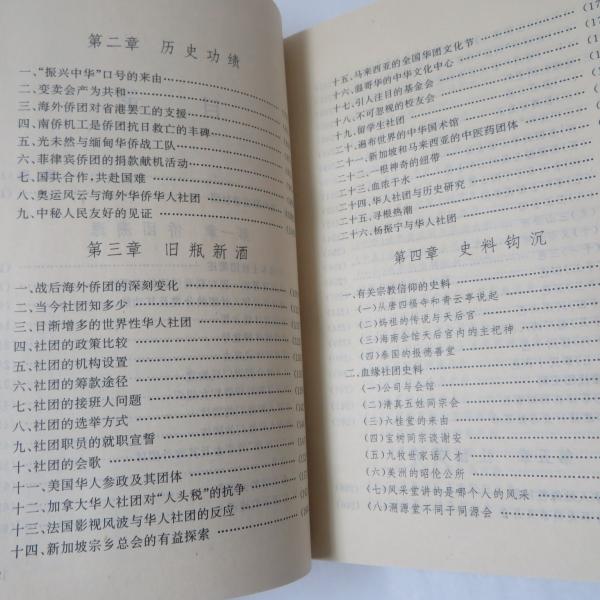 第二章 历史功绩
一、“振兴中华”口号的来由
二、变卖会产为共和
三、海外侨团对省港罢工的支援
四、南侨机工是侨团抗日救亡的丰碑
五、光未然与缅甸华侨战工队
六、菲律宾侨团的捐款献机活动
七、国共合作,共赴国难
八、奥运风云与海外华侨华人社团
九、中秘人民友好的见证
第三章 旧瓶新酒
一、战后海外侨团的深刻变化
二、当今社团知多少
三、日渐增多的世界性华人社团
四、社团的政策比较
五、社团的机构设置
六、社团的筹款途径
七、社团的接班人问题
八、社团的选举方式
九、社团职员的就职宣誓
十、社团的会歌
十一、美国华人参政及其团体
十二、加拿大华人社团对“人头税”的抗争
十三、法国影视风波与华人社团的反应
十四、新加坡宗乡总会的有益探索
十五、马来西亚的全国华团文化节
十六、温哥华的中华文化中心
十七、引人注目的基金会
十八、不可忽视的校友会
十九、留学生社团
二十、遍布世界的中华国术馆
二十一、新加坡和马来西亚的中医药团体
二十二、一根神奇的纽带
二十三、血浓于水
二十四、华人社团与历史研究
二十五、寻根热潮
二十六、杨振宁与华人社团
第四章 史料钩沉
一、有关宗教信仰的史料
(一)从唐四福寺和青云亭说起
(二)妈祖的传说与天后宫
(三)海南会馆天后宫内的主祀神
(四)泰国的报德善堂
二、血缘社团史料
(一)公司与会馆
(二)清真五姓同宗会
(三)六桂堂的由来
(四)宝树同宗谈谢安
(五)九牧世家话人才
(六)美洲的昭伦公所
(七)风采堂讲的是哪个人的风采
(八)溯源堂不同于同源会